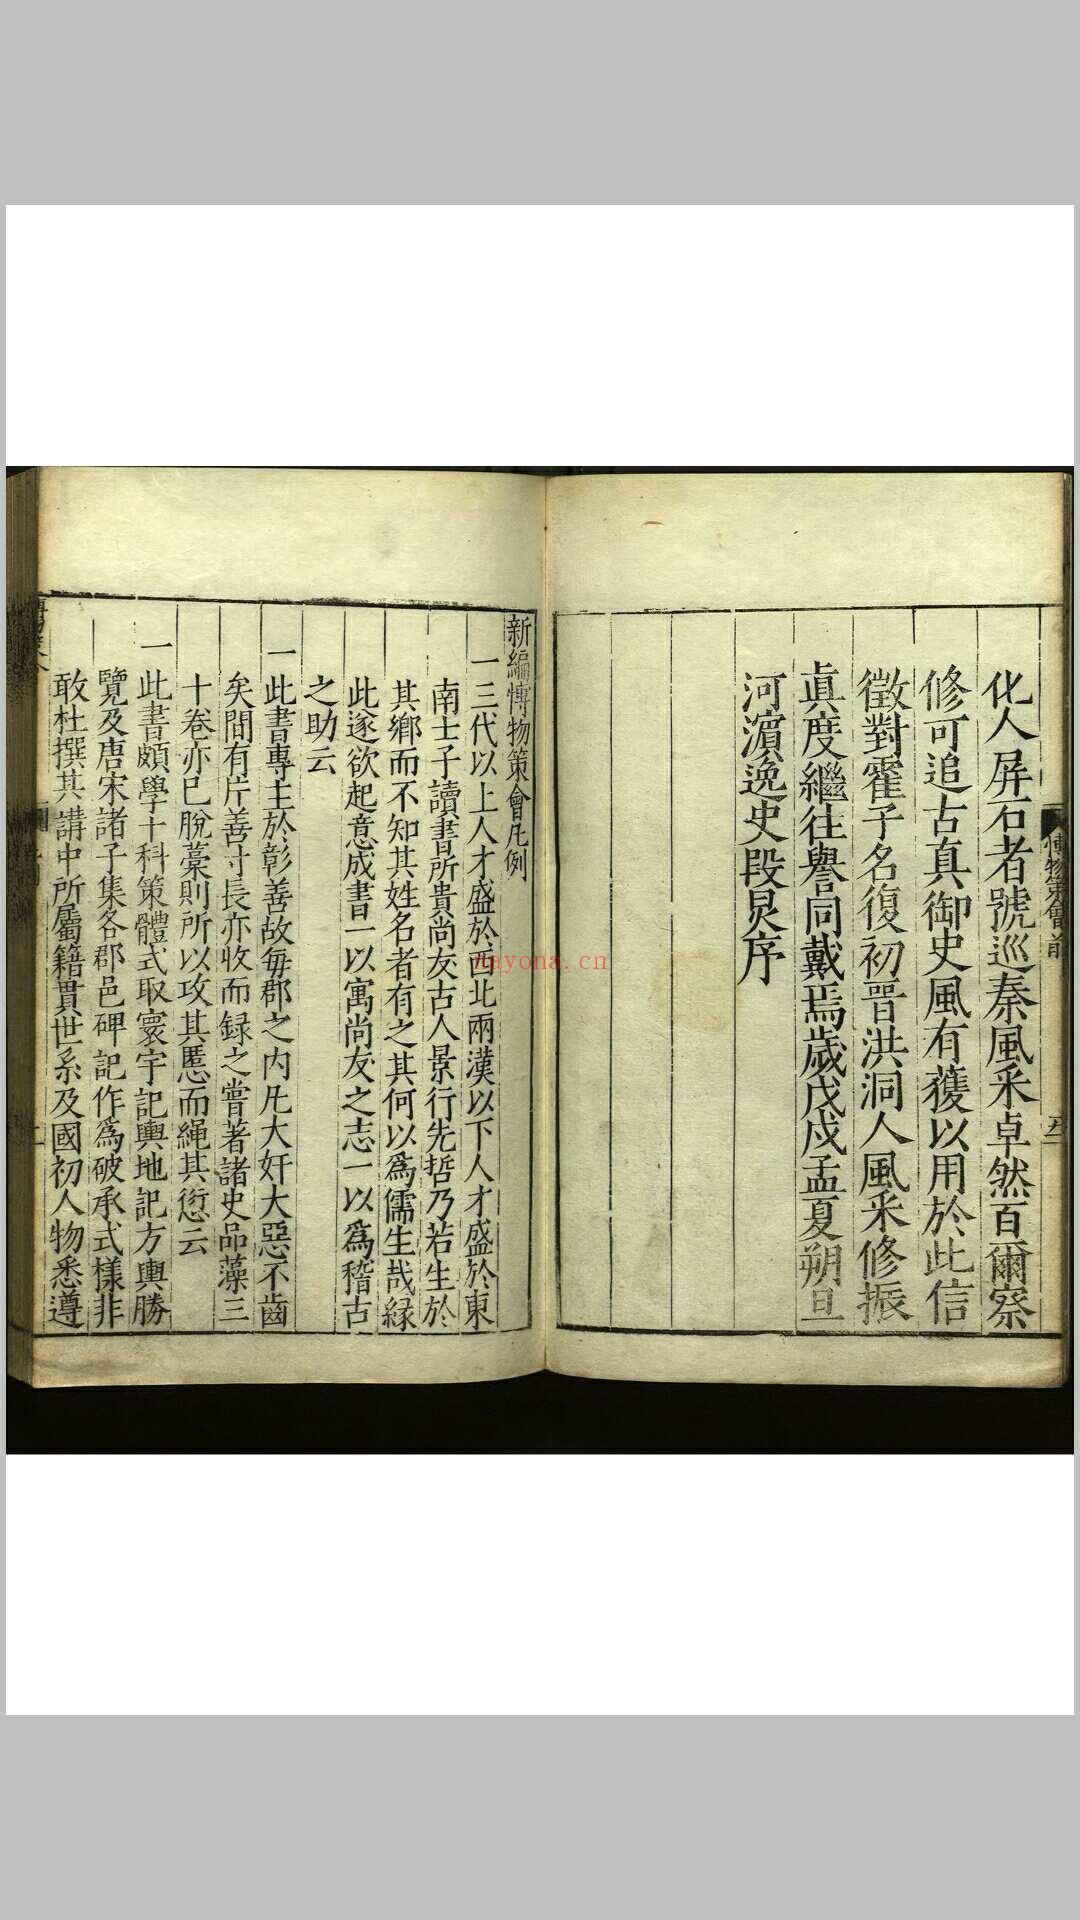 化人屏石者號巡秦風采卓然百爾察
修可追古真御史風有蒦以用於此信
徵對霍子名復初晉洪洞人風采修振
眞度繼往譽同戴焉歲戊戌孟夏朔旦
河濵逸史段炅序
新編博物策會凡例
一三代以上人才盛於西北兩漢以下人才盛於東
南士子讀書所貴尚友古人景行先哲乃若生於
其鄉而不知其姓名者有之其何以爲儒生哉緣
此遂欲起意成書一以寓尚友之志一以爲稽古
之助云
一此書專主於彰善故每郡之内凡大奸大惡不齒
矣間有片善寸長亦收而録之嘗著諸史品藻三
十卷亦已脫藁則所以攻其慝而繩其愆云
一此書頗學十科策體式取寰宇記輿地記方輿勝
覽及唐宋諸子集各郡邑碑記作爲破承式樣非
敢杜撰其講中所屬籍貫世系及國初人物悉遵
nayona.cn